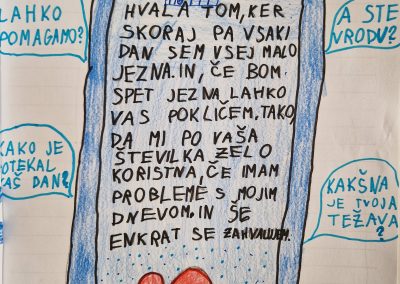 LAHKO
POMAGAMO?
HVALA TOM, KER
SKORAJ PA VSAKI
DAN SEM VSEJ MALO
JEZNA. IN, ČE BOM
SPET JEZNA LAHKO
VAS POKLIČEM, TAKO,
DA MI PO VAŠA
ŠTEVILKA ZELO
KORISTNA, ČE IMAM
PROBLEME S MOJIM
DNEVOM. IN ŠE
ENKRAT SE ZAHVALUJEM.
A STE
VREDU?
KAKO JE
POTEKAL
VAŠ DAN?
KAKŠNA
JE TVOJA
TEŽAVA
?